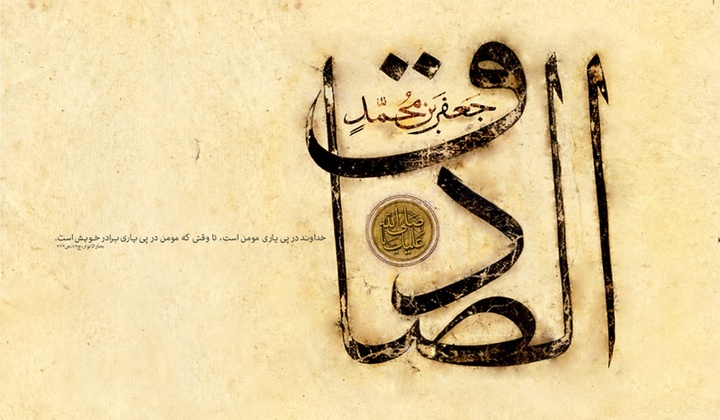 جَعفَر بن مُحَمَّدٍ
الصادق
صلی الله
علیک یا
خداوند در پی یاری مومن است، تا وقتی که مومن در پی یاری برادر خویش است.